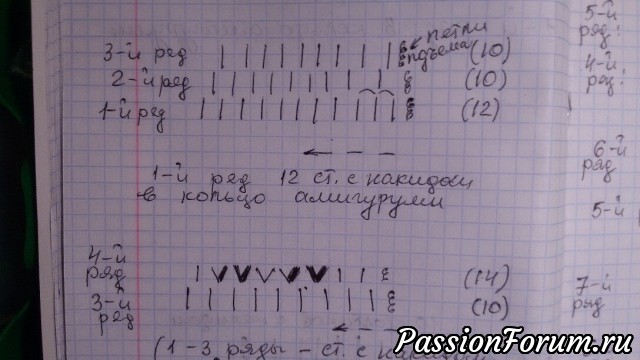 ← петли
3-й ряд подъема (10)
2-й ряд (10)
1-й ряд (12)
1-й ряд 12 ст. с накидом
в кольцо амигуруми
4-й
ряд (14)
3-й
ряд (10)
(1-3 ряды - ст. с накидом
5-й
ряд:
4-й
ряд:
6-й
ряд
5-й
7-й
ряд
PassionForum.ru